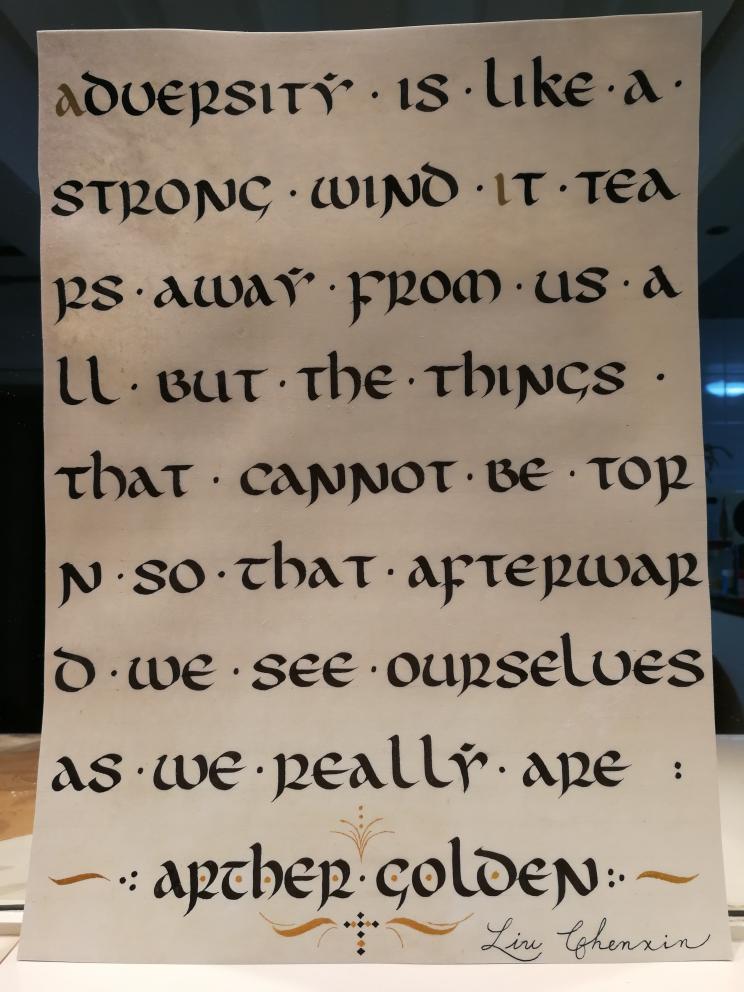 aDVERSITY · IS · LIKE · a ·
STRONG · WIND · IT · TEA
RS · AWAY · FROM · US · A
LL · BUT · THE · THINGS ·
THAT · CANNOT · BE · TOR
N · SO · THAT · AFTERWAR
D · WE · SEE · OURSELVES
AS · WE · REALLY · ARE :
ARTHER · GOLDEN
Liu Chenxin